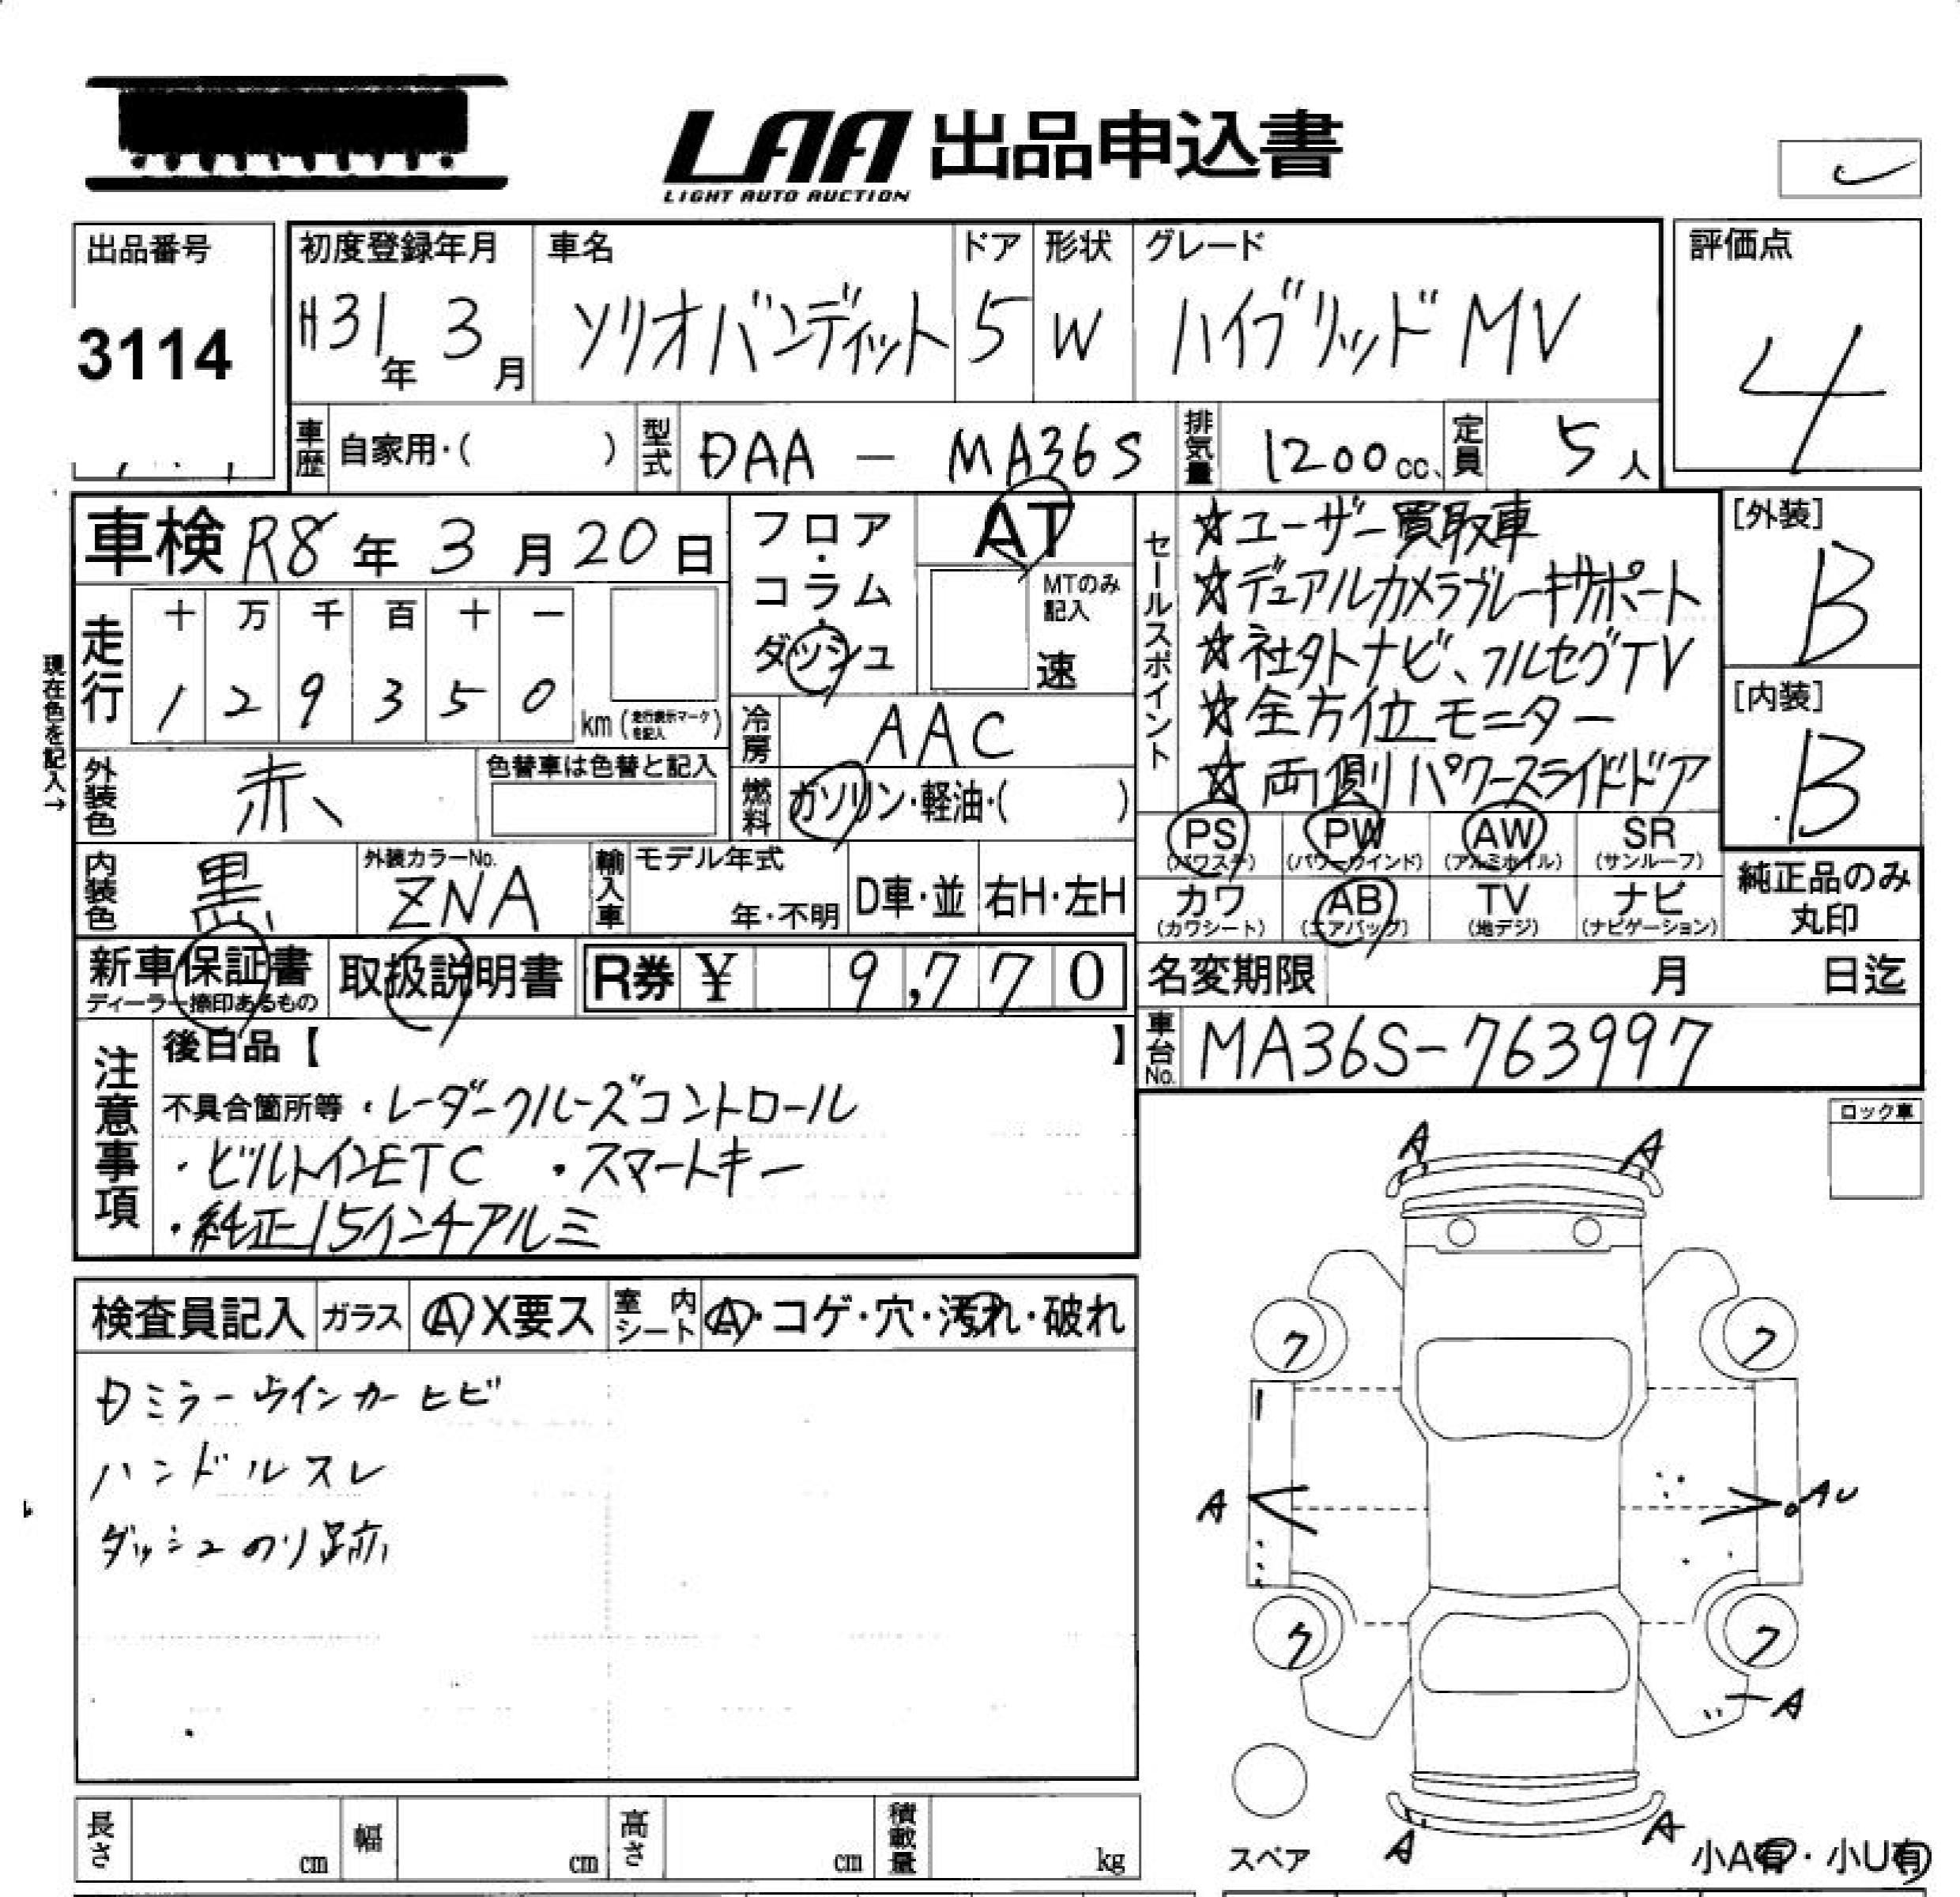 LAA 出品申込書
LIGHT AUTO AUCTION
出品番号
3114
初度登録年月
H31年 3月
車名
ソリオバンディット
ドア
5
形状
W
グレード
ハイブリッド MV
評価点
4
車歴 自家用・( )
型式 DAA - MA36S
排気量 1200cc
定員 5人
車検 R8年 3月 20日
フロア・コラム・ダッシュ
AT
MTのみ記入
速
セールスポイント
☆ユーザー買取車
☆デュアルカメラブレーキサポート
☆社外ナビ、フルセグTV
☆全方位モニター
☆両側パワースライドドア
[外装]
B
[内装]
B
現在色を記入→
走行
十 万 千 百 十 一
1 2 9 3 5 0 km (走行表示マークを記入)
冷房 AAC
外装色 赤
色替車は色替と記入
燃料 ガソリン・軽油・( )
PS (パワステ)
PW (パワーウインド)
AW (アルミホイル)
SR (サンルーフ)
カワ (カワシート)
AB (エアバッグ)
TV (地デジ)
ナビ (ナビゲーション)
純正品のみ丸印
内装色 黒
外装カラーNo. ZNA
輸入車 モデル年式 年・不明
D車・並
右H・左H
新車保証書
ディーラー捺印あるもの
取扱説明書
R券 ¥ 9,770
名変期限 月 日迄
車台No. MA36S-763997
注意事項
後日品【 】
不具合箇所等 ・レーダークルーズコントロール
・ビルトインETC ・スマートキー
・純正15インチアルミ
ロック車
検査員記入 ガラス A X要ス 室内シート A・コゲ・穴・汚れ・破れ
ミラーウインカーヒビ
ハンドルスレ
ダッシュのり跡
A A
ク ク
A AU
ク ク
A
A A
スペア
小A有・小U有
長さ cm
幅 cm
高さ cm
積載量 kg